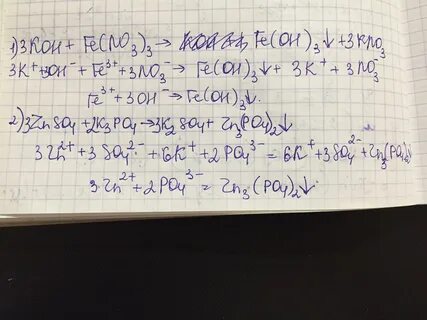 1) 3KOH + Fe(NO3)3 → Fe(OH)3↓ + 3KNO3
3K⁺ + 3OH⁻ + Fe³⁺ + 3NO3⁻ → Fe(OH)3↓ + 3K⁺ + 3NO3⁻
Fe³⁺ + 3OH⁻ → Fe(OH)3↓.
2) 3ZnSO4 + 2K3PO4 → 3K2SO4 + Zn3(PO4)2↓
3Zn²⁺ + 3SO4²⁻ + 6K⁺ + 2PO4³⁻ = 6K⁺ + 3SO4²⁻ + Zn3(PO4)2↓
3Zn²⁺ + 2PO4³⁻ = Zn3(PO4)2↓.